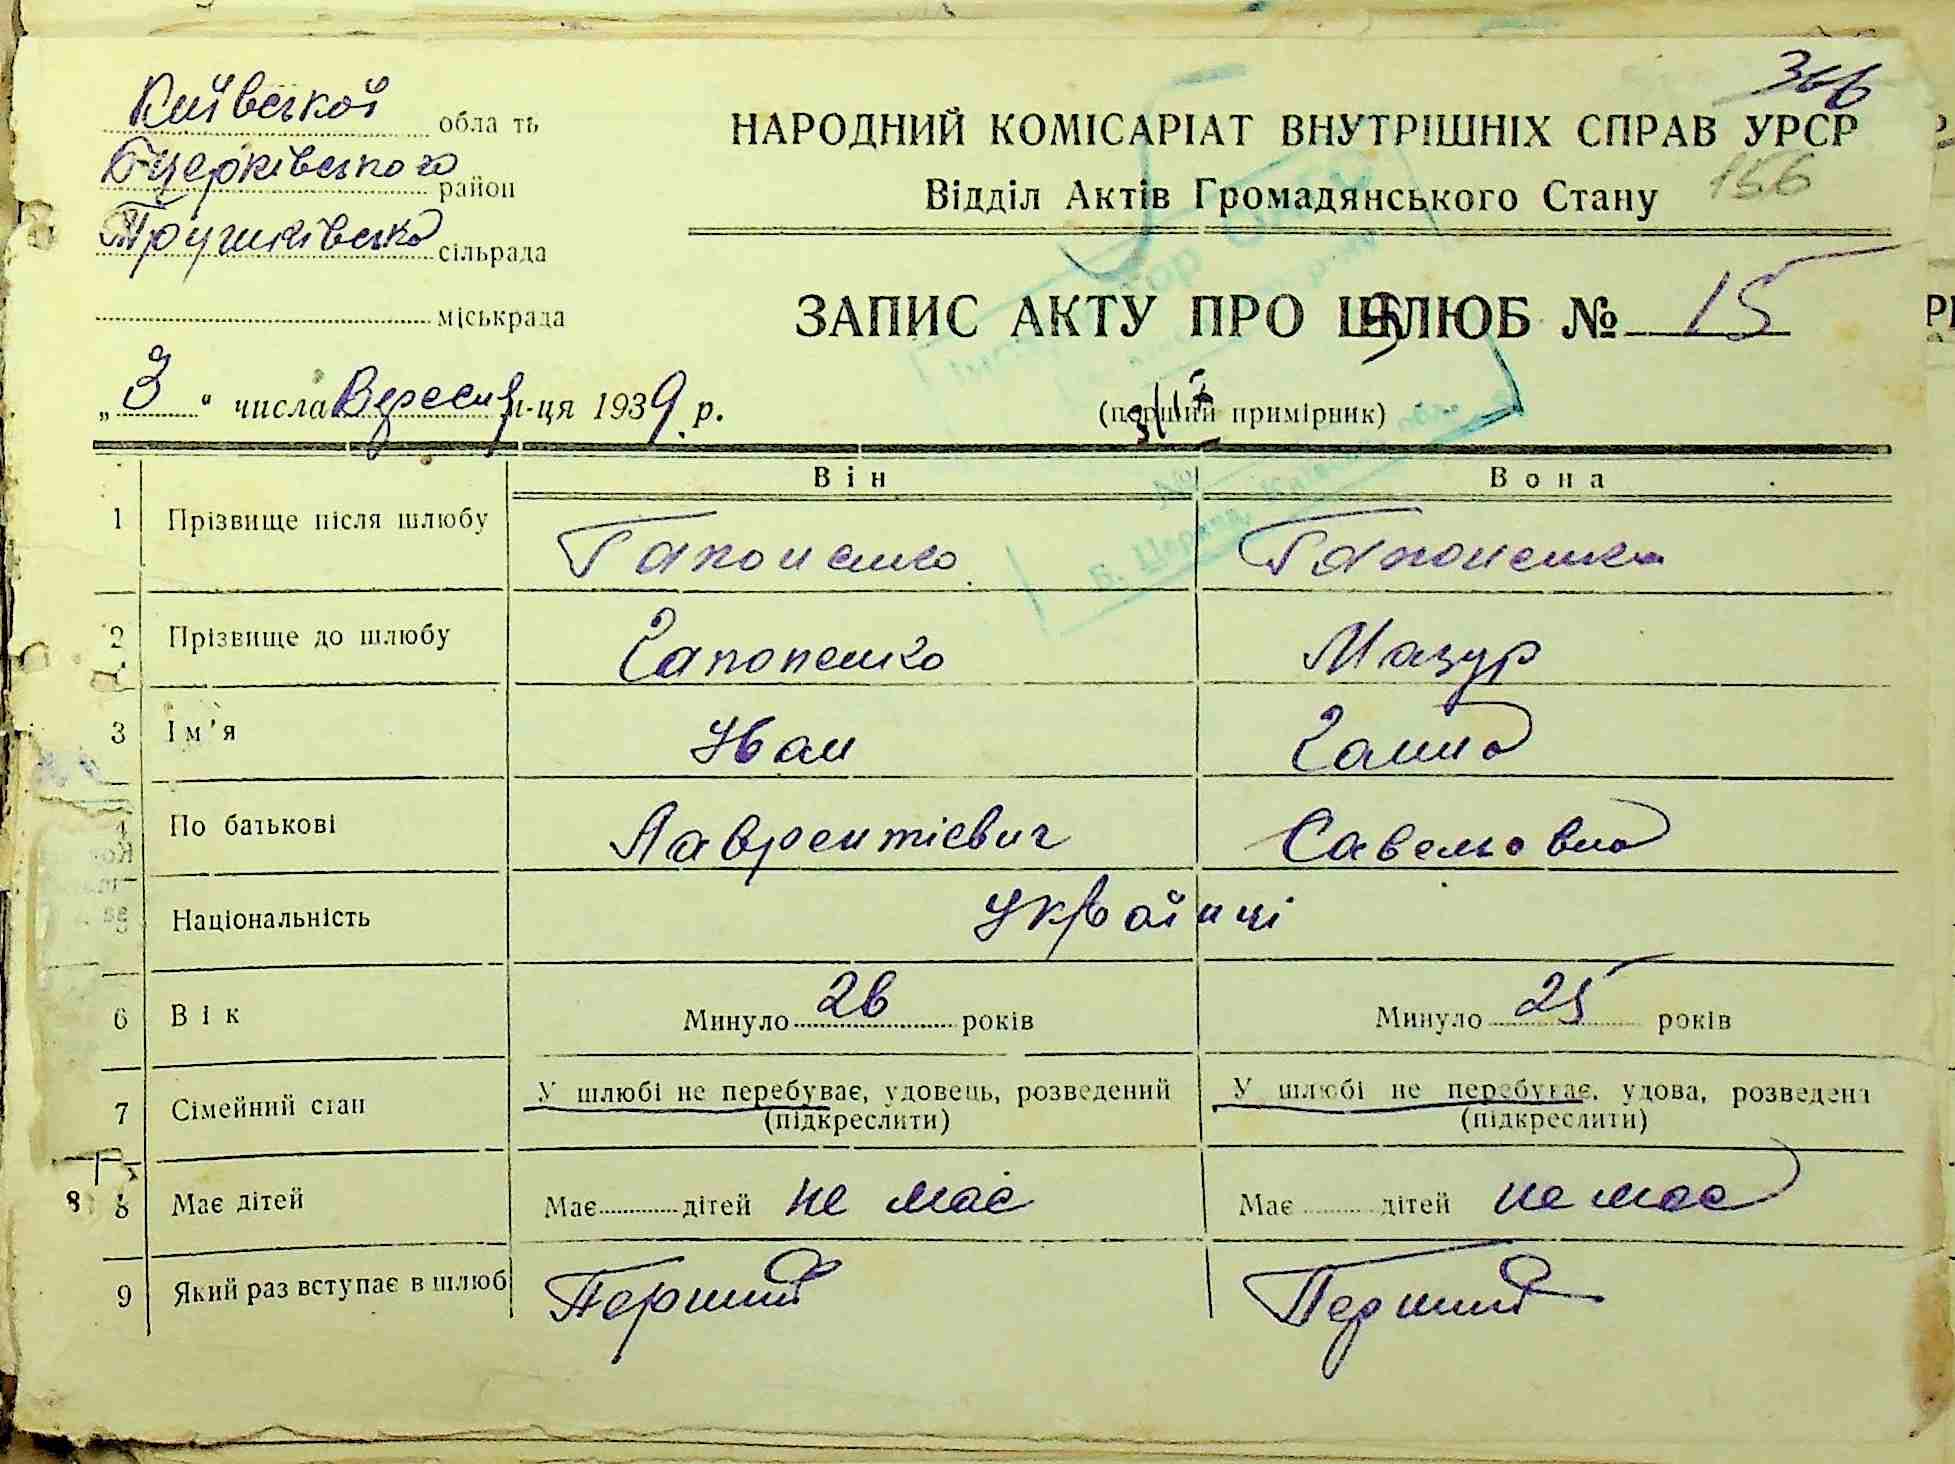 Київської область
Бцерківського район
Трушківська сільрада
міськрада
366
НАРОДНИЙ КОМІСАРІАТ ВНУТРІШНІХ СПРАВ УРСР
Відділ Актів Громадянського Стану 156
ЗАПИС АКТУ ПРО ШЛЮБ № 15
„3“ числа Вересня м-ця 1939 р.
(перший примірник)
Б. Церква
Він Вона
1 Прізвище після шлюбу Гапоненко Гапоненко
2 Прізвище до шлюбу Гапоненко Мазур
3 Ім'я Іван Ганна
4 По батькові Лаврентієвич Савельовна
5 Національність Українці
6 Вік Минуло 26 років Минуло 25 років
7 Сімейний стан У шлюбі не перебуває, удовець, розведений У шлюбі не перебуває, удова, розведена
(підкреслити) (підкреслити)
8 8 Має дітей Має дітей не має Має дітей не має
9 Який раз вступає в шлюб Перший Перший